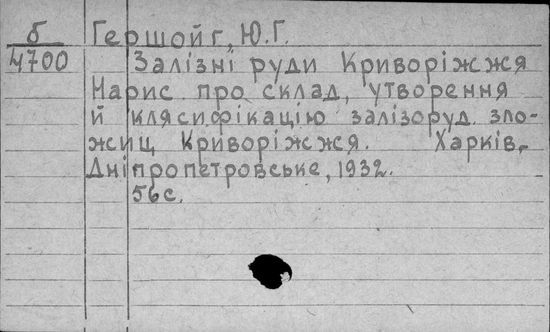 б Гершойг, Ю.Г.
4700 Залізні руди Криворіжжя
Нарис про склад, утворення
йклясифікацію залізоруд. зло-
жищ Криворіжжя. Харків,-
Дніпропетровське, 1932.
56с.